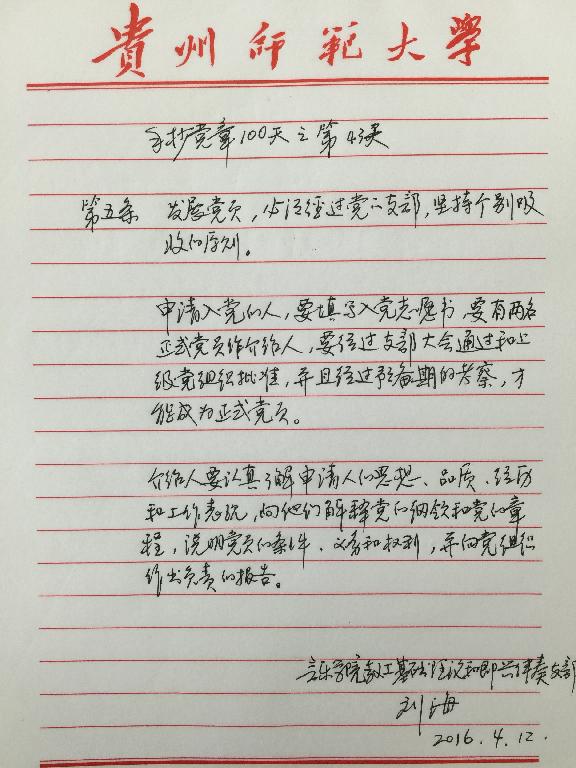 貴州师範大學
手抄党章100天之第43天
第五条 发展党员，必须经过党的支部，坚持个别吸
收的原则。
申请入党的人，要填写入党志愿书，要有两名
正式党员作介绍人，要经过支部大会通过和上
级党组织批准，并且经过预备期的考察，才
能成为正式党员。
介绍人要认真了解申请人的思想、品质、经历
和工作表现，向他们解释党的纲领和党的章
程，说明党员的条件、义务和权利，并向党组织
作出负责的报告。
音乐学院教工基础理论和即兴伴奏支部
刘海
2016.4.12.